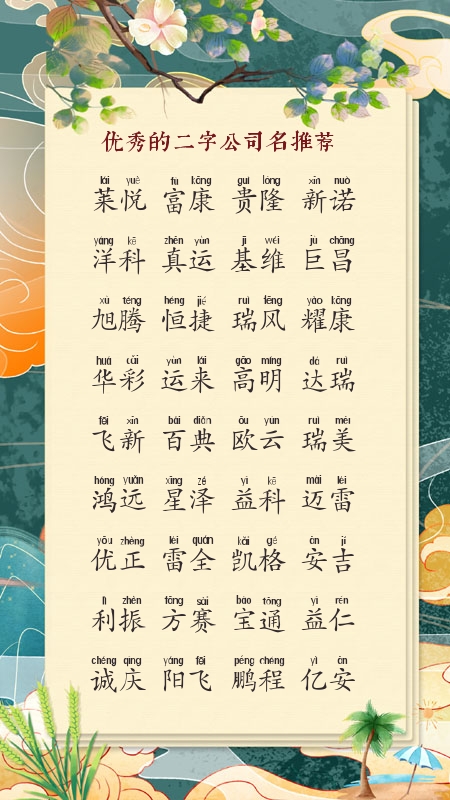 优秀的二字公司名推荐
lái yuè fù kāng guì lóng xīn nuò
莱悦 富康 贵隆 新诺
yáng kē zhēn yùn jī wéi jù chāng
洋科 真运 基维 巨昌
xù téng héng jié ruì fēng yào kāng
旭腾 恒捷 瑞风 耀康
huá cǎi yùn lái gāo míng dá ruì
华彩 运来 高明 达瑞
fēi xīn bǎi diǎn ōu yún ruì měi
飞新 百典 欧云 瑞美
hóng yuǎn xīng zé yì kē mài léi
鸿远 星泽 益科 迈雷
yōu zhèng léi quán kǎi gé ān jí
优正 雷全 凯格 安吉
lì zhèn fāng sài bǎo tōng yì rén
利振 方赛 宝通 益仁
chéng qìng yáng fēi péng chéng yì ān
诚庆 阳飞 鹏程 亿安